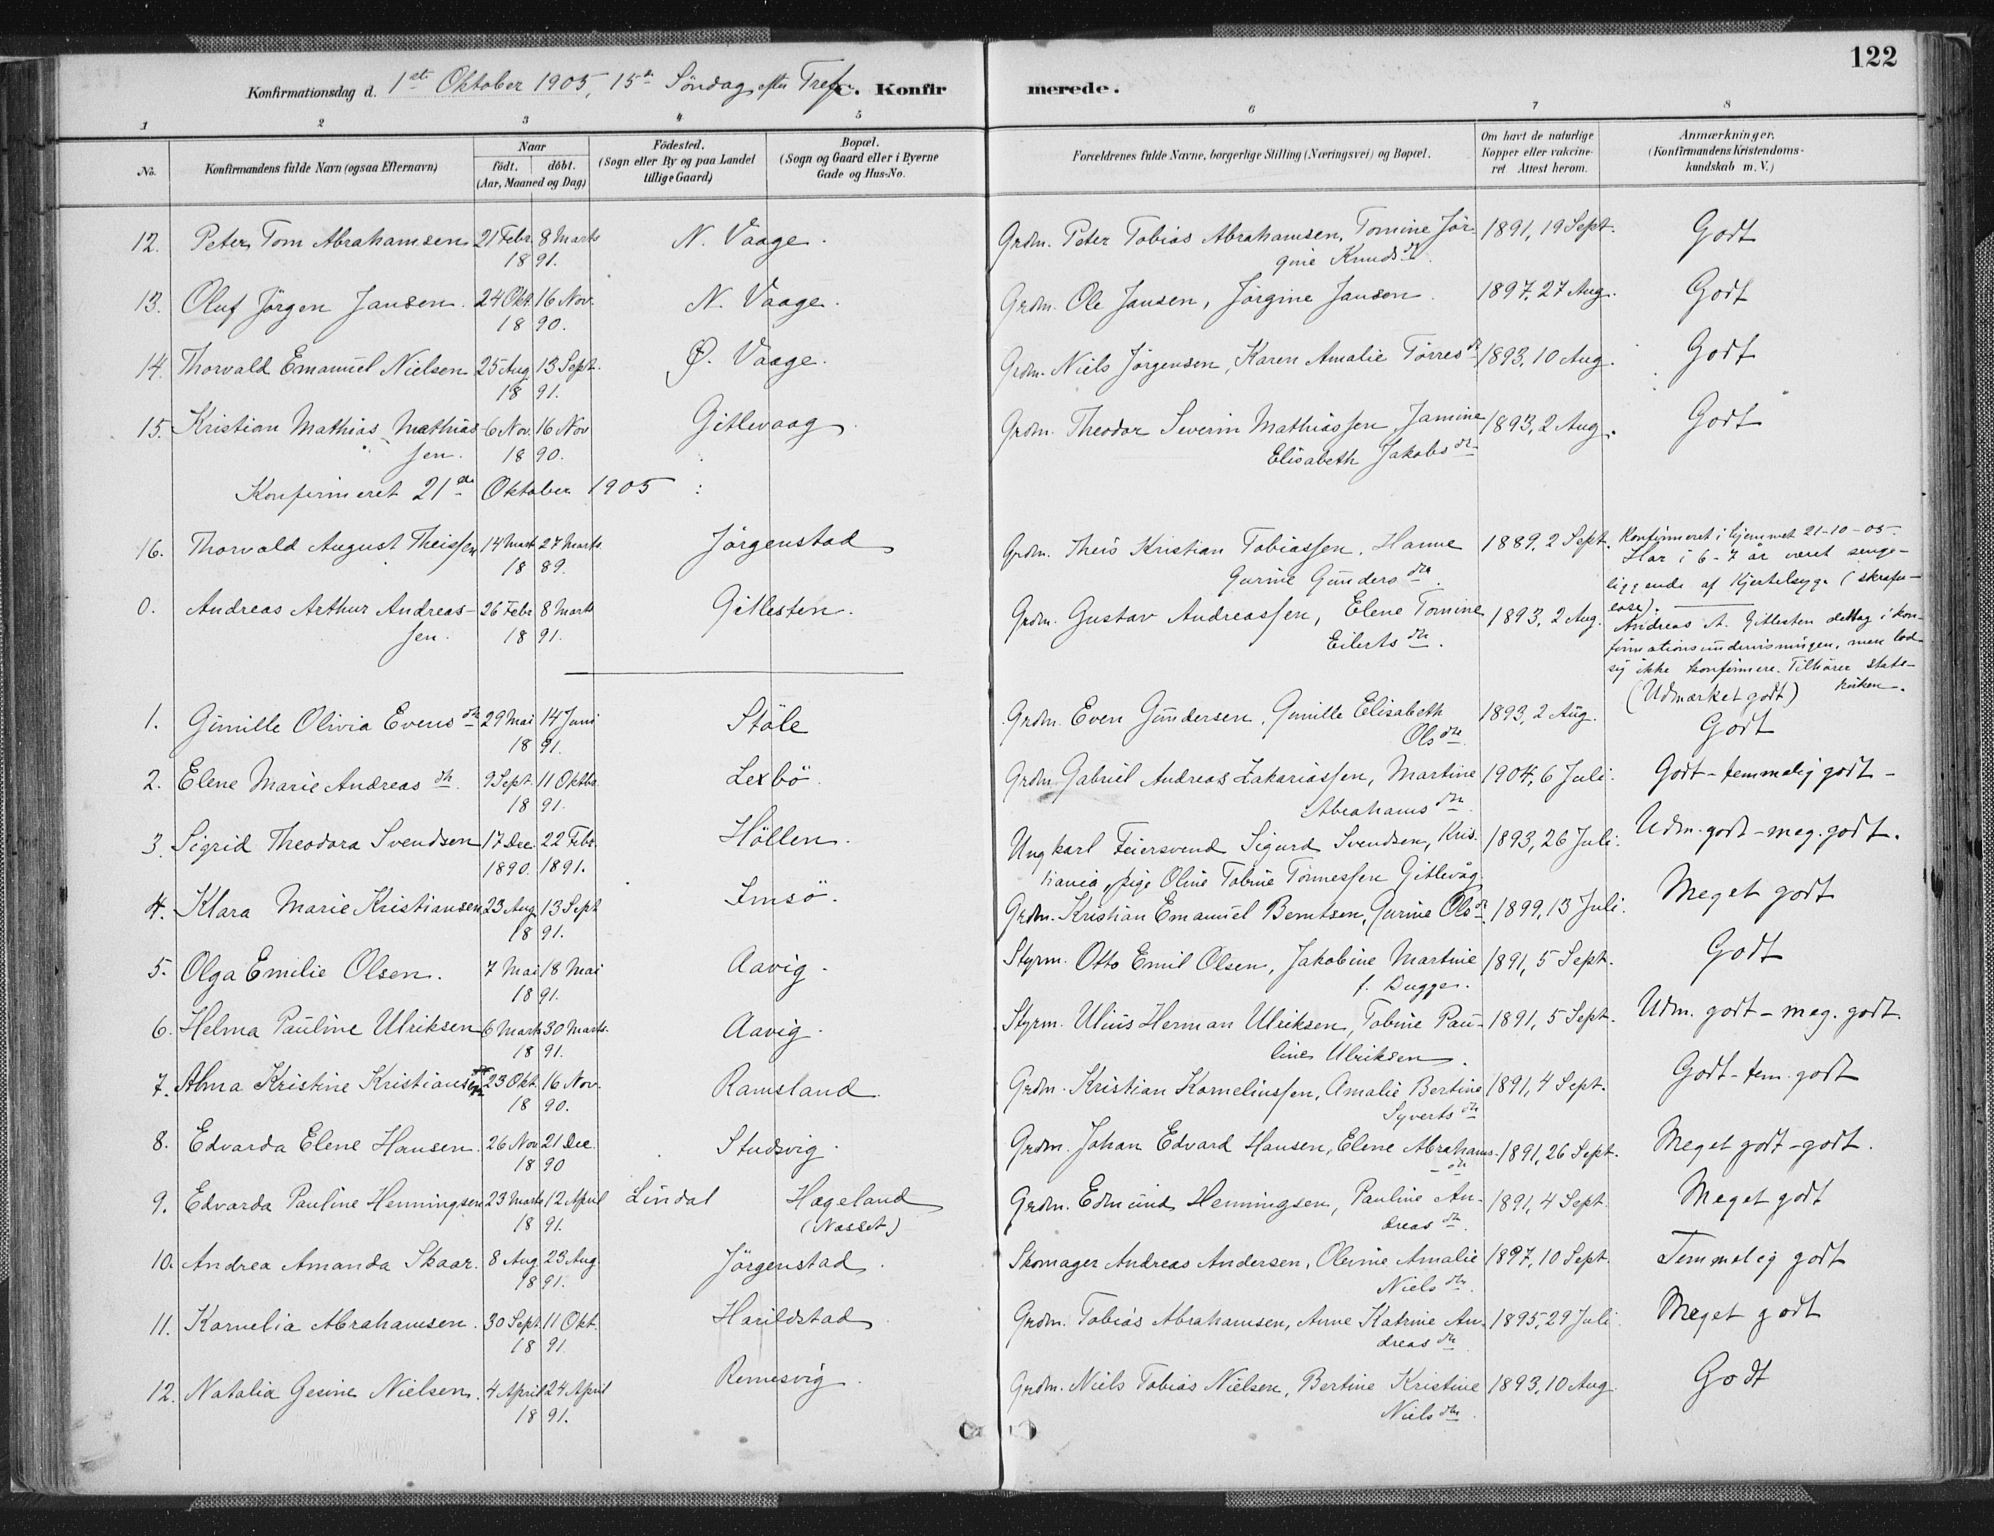 122
Konfirmationsdag d. 1ste Oktober 1905, 15de Söndag efter Tref. C. Konfirmerede.
1 2 3 4 5 6 7 8
No. Konfirmandens fulde Navn (ogsaa Efternavn) Naar födt. döbt. (Aar, Maaned og Dag) Födested. (Sogn eller By og paa Landet tillige Gaard) Bopæl. (Sogn og Gaard eller i Byerne Gade og Hus-No. Forældrenes fulde Navne, borgerlige Stilling (Næringsvei) og Bopæl. Om havt de naturlige Kopper eller vakcineret Attest herom. Anmærkninger. (Konfirmandens Kristendomskundskab m. V.)
12. Peter Tom Abrahamsen 21 Febr. 8 Marts N. Vaage. Grdm. Peter Tobias Abrahamsen, Tomine Jör- 1891, 19 Sept. Godt
18 91. gine Knudsdtr.
13. Oluf Jörgen Jansen. 24 Okt. 16 Nov. N. Vaage. Grdm. Ole Jansen, Jörgine Jansen. 1897, 27 Aug. Godt
18 90.
14. Thorvald Emanuel Nielsen 25 Aug. 13 Sept. Ø. Vaage. Grdm. Niels Jörgensen, Karen Amalie Törresdtr 1893, 10 Aug. Godt
18 91.
15. Kristian Mathias Mathias- 6 Nov. 16 Nov Gitlevaag. Grdm. Theodor Severin Mathiassen, Jamine 1893, 2 Aug. Godt
sen. 18 90. Elisabeth Jakobsdtr
Konfirmeret 21de Oktober 1905:
16. Thorvald August Theissen 14 Mart 27 Marts Jörgenstad Grdm. Theis Kristian Tobiassen, Hanne 1889, 2 Sept. Konfirmeret i hjemmet 21-10-05.
18 89. Gurine Gundersdtr. Har i 6-7 år været senge-
liggende af Kjertelsyge (skrofu-
lose).
0. Andreas Arthur Andreas- 26 Febr. 8 Marts Gitlesten. Grdm. Gustav Andreassen, Elene Tomine 1893, 2 Aug. Andreas A. Gitlesten deltog i kon-
sen. 18 91. Eilertsdtr. firmationsundervisningen, men lod
sig ikke konfirmere. Tilhører stats-
kirken.
(Udmærket godt)
1. Gunille Olivia Evensdtr 29 Mai 14 Juni Ståle Grdm. Even Gundersen, Gunille Elisabeth 1893, 2 Aug. Godt
18 91. Olsdtr.
2. Elene Marie Andreasdtr. 9 Sept. 11 Oktbr. Lexbö. Grdm. Gabriel Andreas Zakariassen, Martine 1904, 6 Juli. Godt - temmelig godt -
18 91. Abrahamsdtr.
3. Sigrid Theodora Svendsen 17 Dec. 22 Febr Höllen. Ungkarl Feiersvend Sigurd Svendsen, Kris- 1893, 26 Juli. Udm. godt - meg. godt.
1890. 1891. tiania, pige Oline Tobine Tönnessen Gitlevåg.
4. Klara Marie Kristiansen 23 Aug 13 Sept Imsö. Grdm. Kristian Emanuel Berntsen, Gurine Olsdtr. 1899, 13 Juli. Meget godt
18 91.
5. Olga Emilie Olsen. 7 Mai 18 Mai Aavig. Styrm. Otto Emil Olsen, Jakobine Martine 1891, 5 Sept. Godt
18 91. f. Dugger.
6. Helma Pauline Ulriksen 6 Marts 30 Marts. Aavig. Styrm. Ulius Herman Ulriksen, Tobine Pau- 1891, 5 Sept. Udm. godt - meg. godt.
18 91. line Ulriksen.
7. Alma Kristine Kristiansen 23 Okt. 16 Nov. Ramsland Grdm. Kristian Korneliussen, Amalie Bertine 1891, 4 Sept. Godt - tem. godt
18 90. Syvertsdtr
8. Edvarda Elene Hansen. 26 Nov. 21 Dec. Studsvig. Grdm. Johan Edvard Hansen, Elene Abrahams- 1891, 26 Sept. Meget godt - godt.
18 90 dtr
9. Edvarda Pauline Henningsen 23 Marts 12 April Lindal Hægeland Grdm. Edmund Henningsen, Pauline An- 1891, 4 Sept. Meget godt
18 91. (Nasset) dreasdtr.
10. Andrea Amanda Skaar. 8 Aug. 23 Aug. Jörgenstad. Skomager Andreas Andersen, Olevine Amalie 1897, 10 Sept. Temmelig godt
18 91. Nielsdtr.
11. Kornelia Abrahamsen. 30 Sept. 11 Okt. Harildstad. Grdm. Tobias Abrahamsen, Anne Katrine An- 1895, 29 Juli. Meget godt
18 91. dreasdtr
12. Natalia Gesine Nielsen. 4 April 24 April Remesvig. Grdm. Niels Tobias Nielsen, Bertine Kristine 1893, 10 Aug. Godt
18 91. Nielsdtr.